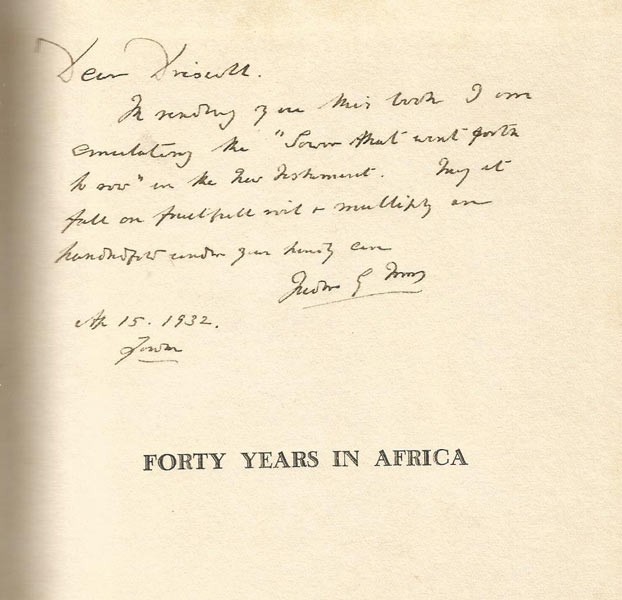 Dear Driscoll.
In sending you this book I am
emulating the "Sower that went forth
to sow" in the New Testament. May it
fall on fruitfull soil & multiply an
hundredfold under your kindly care
Tudor G Trevor
Ap 15. 1932.
FORTY YEARS IN AFRICA